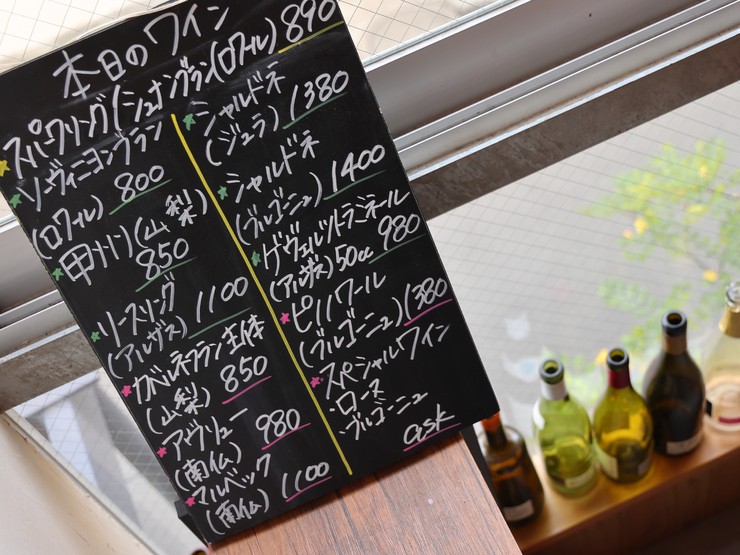 本日のワイン
スパークリング(シュナンブラン(ロワール) 890
ソーヴィニヨンブラン
(ロワール) 800
甲州(山梨)
850
リースリング
(アルザス) 1100
カベルネフラン主体
(山梨) 850
(南仏) 980
マルベック
(南仏) 1100
シャルドネ
(ジュラ) 1380
シャルドネ
(ブルゴーニュ) 1400
ゲヴェルツトラミネール
(アルザス) 50cc 980
ピノノワール
(ブルゴーニュ) 1380
スペシャルワイン
・ローヌ
・ブルゴーニュ
ask